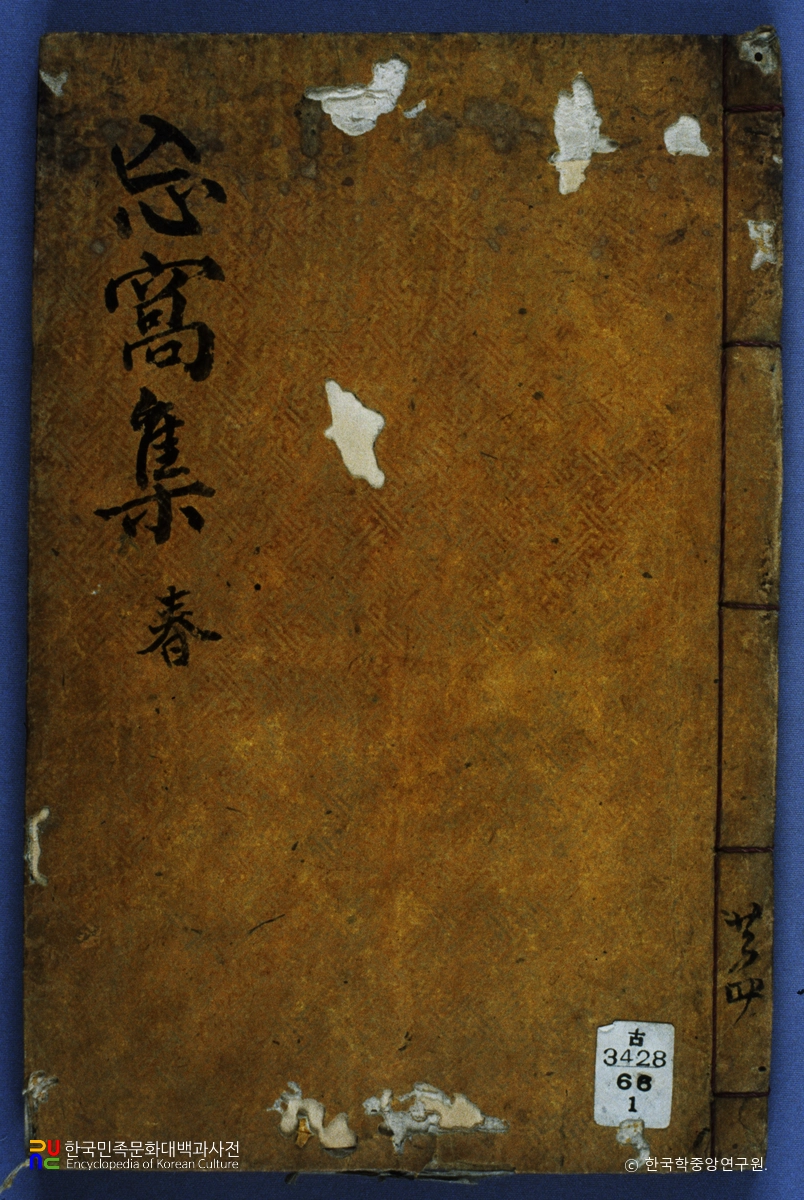 忘窩集 春
共四
古
3428
66
1
한국민족문화대백과사전
Encyclopedia of Korean Culture
© 한국학중앙연구원.